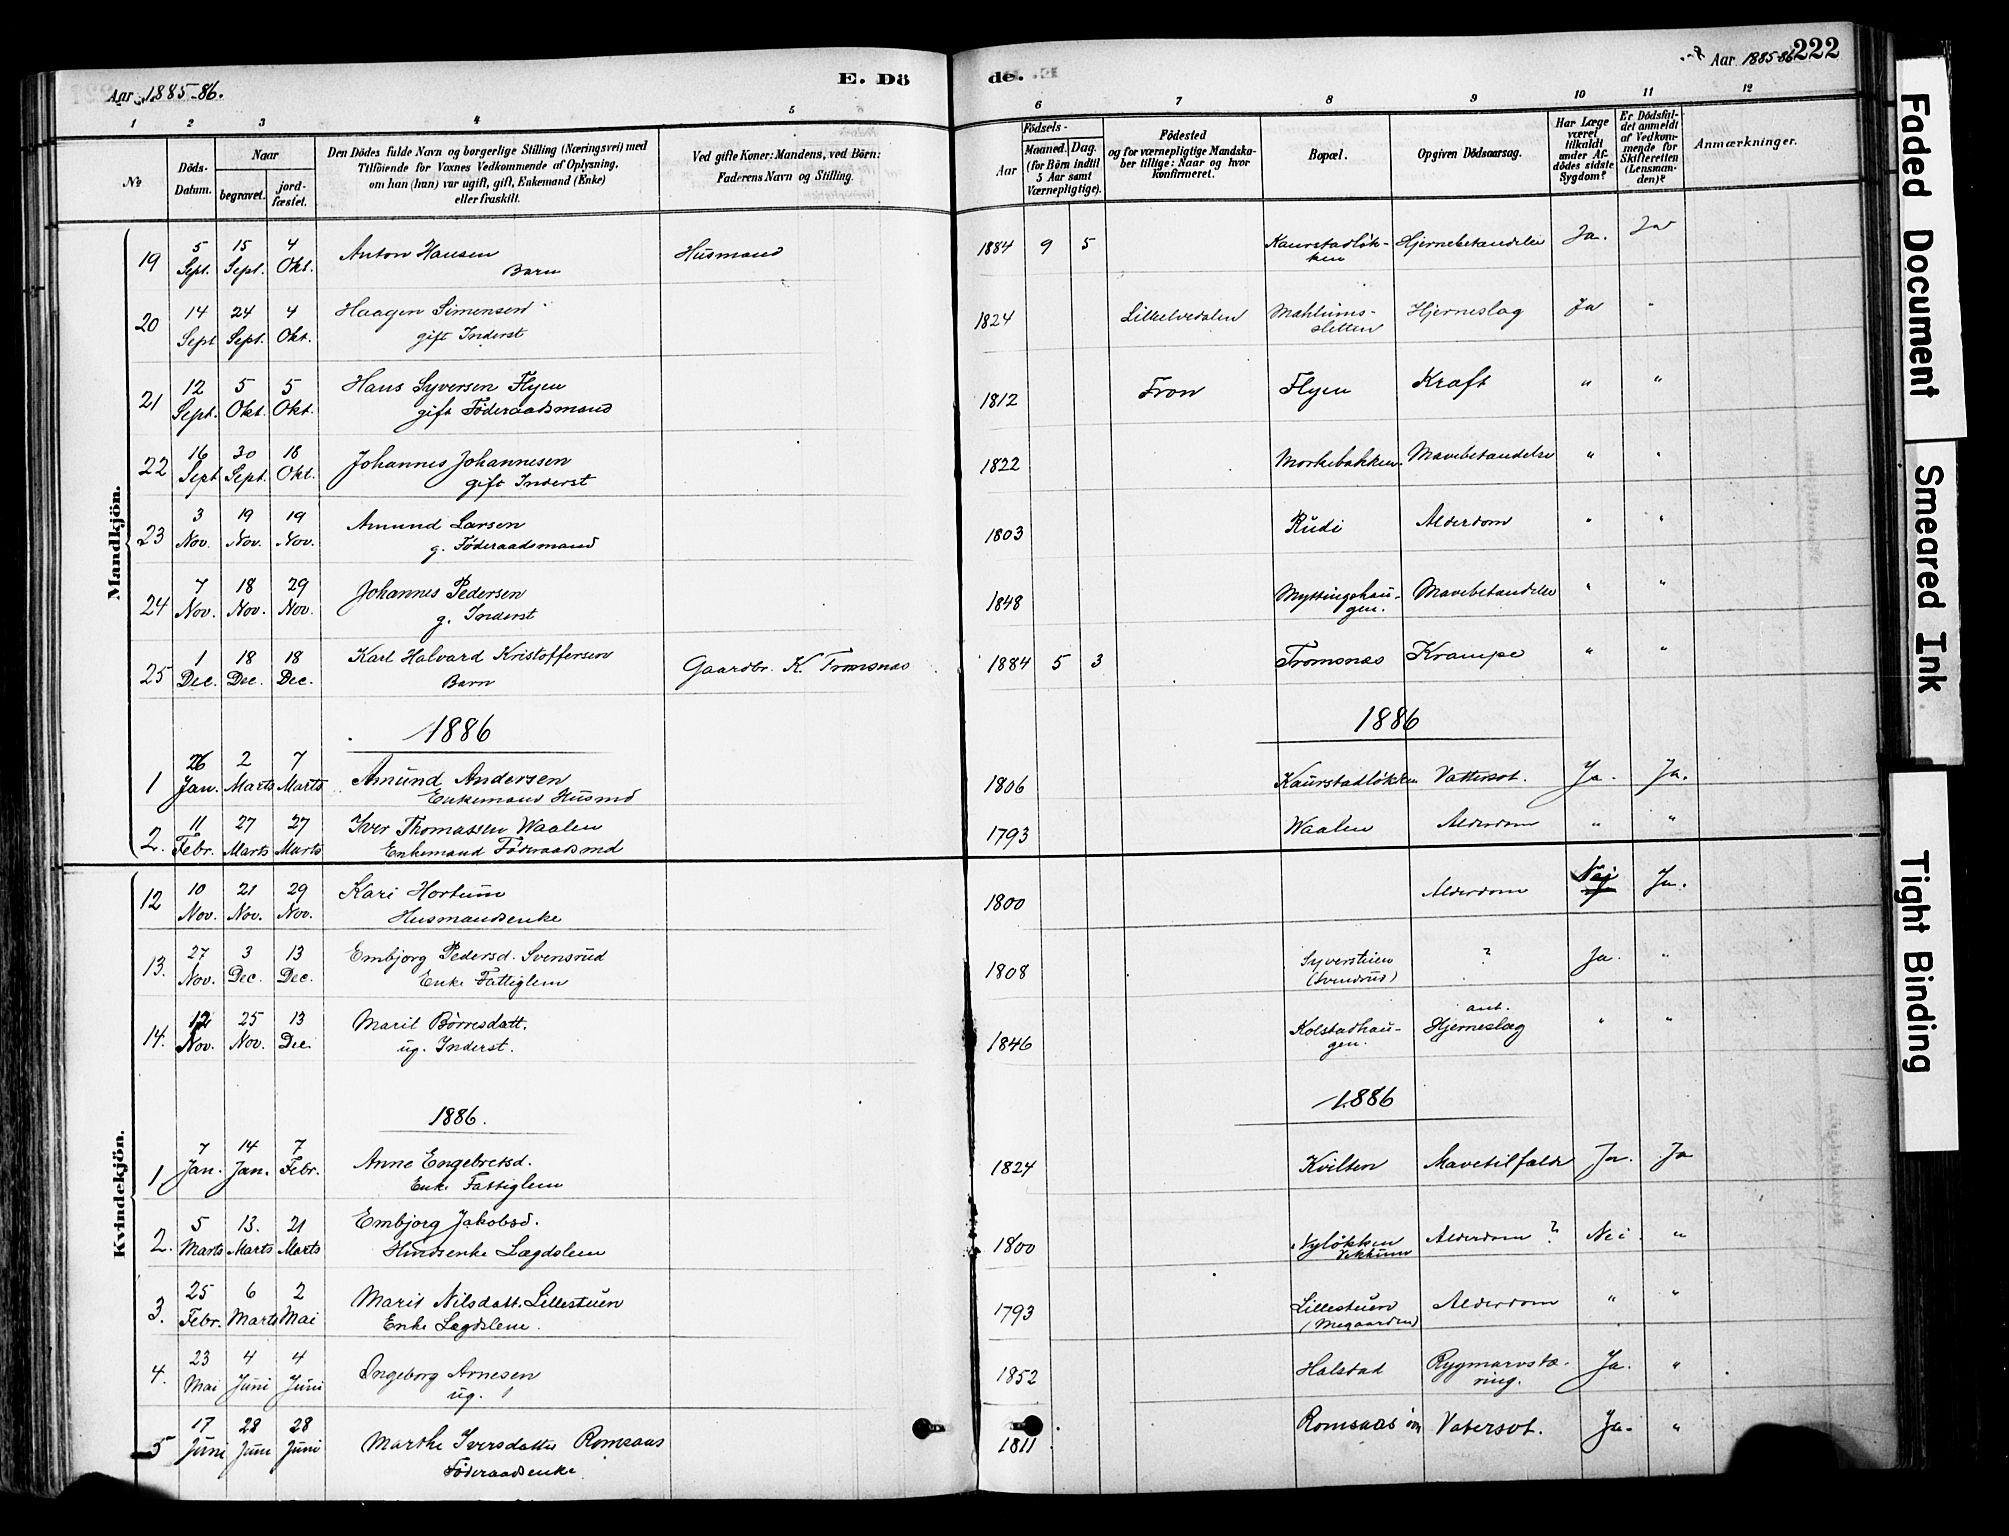 Aar 1885-86.
E. Dö
de.
Aar 1885-86
222
1 2 3 4 5
6 7 8 9 10 11 12
No
Döds-Datum.
Naar
begravet.
jord-fæstet.
Den Dödes fulde Navn og borgerlige Stilling (Næringsvei) med
Tilföiende for Voxnes Vedkommende af Oplysning,
om han (hun) var ugift, gift, Enkemand (Enke)
eller fraskilt.
Ved gifte Koner: Mandens, ved Börn:
Faderens Navn og Stilling.
Födsels-
Aar
Maaned. Dag.
(for Börn indtil
5 Aar samt
Værnepligtige).
Födested
og for værnepligtige Mandska-
ber tillige: Naar og hvor
konfirmeret.
Bopæl.
Opgiven Dödsaarsag.
Har Læge
været
tilkaldt
under Af-
dödes sidste
Sygdom?
Er Dödsfal-
det anmeldt
af Vedkom-
mende for
Skifteretten
(Lensman-
den)?
Anmærkninger.
Mandkjön.
19 5 Sept. 15 Sept. 4 Okt. Anton Hansen Barn Husmand 1884 9 5 Kaurstadløk-ken Hjernebetændelse Ja. Ja
20 14 Sept 24 Sept. 4 Okt. Haagen Simensen gift Inderst 1824 Lilleelvedalen Mahlums-sletten Hjerneslag Ja "
21 12 Sept. 5 Okt. 5 Okt. Hans Syversen Flyen gift Føderaadsmand 1812 Fron Flyen Kræft " "
22 16 Sept 30 Sept. 18 Okt. Johannes Johannesen gift Inderst 1822 Morkebakken. Mavebetændelse " "
23 3 Nov. 19 Nov. 19 Nov. Amund Larsen g. Føderaadsmand 1803 Rudi Alderdom " "
24 7 Nov. 18 Nov. 29 Nov. Johannes Pedersen g. Inderst 1848 Myttingshau-gen. Mavebetændelse " "
25 1 Dec. 18 Dec. 18 Dec. Karl Halvard Kristoffersen Barn Gaardbr. K. Tromsnæs 1884 5 3 Tromsnæs Krampe " "
1886 1886
1 26 Jan. 2 Marts 7 Marts Amund Andersen Enkemand Husmd 1806 Kaurstadløkken Vattersot. Ja. Ja.
2. 11 Febr. 27 Marts 27 Marts Iver Thomassen Waalen Enkemand Føderaadsmd 1793 Waalen Alderdom " "
Kvindekjön.
12 10 Nov. 21 Nov. 29 Nov. Kari Hortum Husmandsenke 1800 Alderdom Nei Ja.
13. 27 Nov. 3 Dec. 13 Dec. Embjørg Pedersd. Svensrud Enke Fattiglem 1808 Syverstuen (Svendrud) ? Ja. "
14. 12 Nov. 25 Nov. 13 Dec. Marit Børresdatt. ug. Inderst. 1846 Kolstadhau-gen. ant. Hjerneslag " "
1886. 1886
1 7 Jan. 14 Jan. 7 Febr. Anne Engebretsd. Enke Fattiglem 1824 Kvilten Mavetilfælde Ja. Ja
2. 5 Marts 13. Marts 21 Marts Embjørg Jakobsd. Husmsenke Lægdslem 1800 Nyløkken Vekkum Alderdom ? Nei. "
3. 25 Febr. 6 Marts 2 Mai Marit Nilsdatt. Lillestuen Enke Lægdslem. 1793 Lillestuen (Megaarden) Alderdom " "
4. 23 Mai 4 Juni 4 Juni Ingeborg Arnesen ug. 1852 Halstad Rygmarvstæ-ring. Ja. "
5 17 Juni 28 Juni 28 Juni Marthe Iversdatter Romsaas Føderaadsenke 1811 Romsaas Vatersot. Ja. "
Faded Document
Smeared Ink
Tight Binding